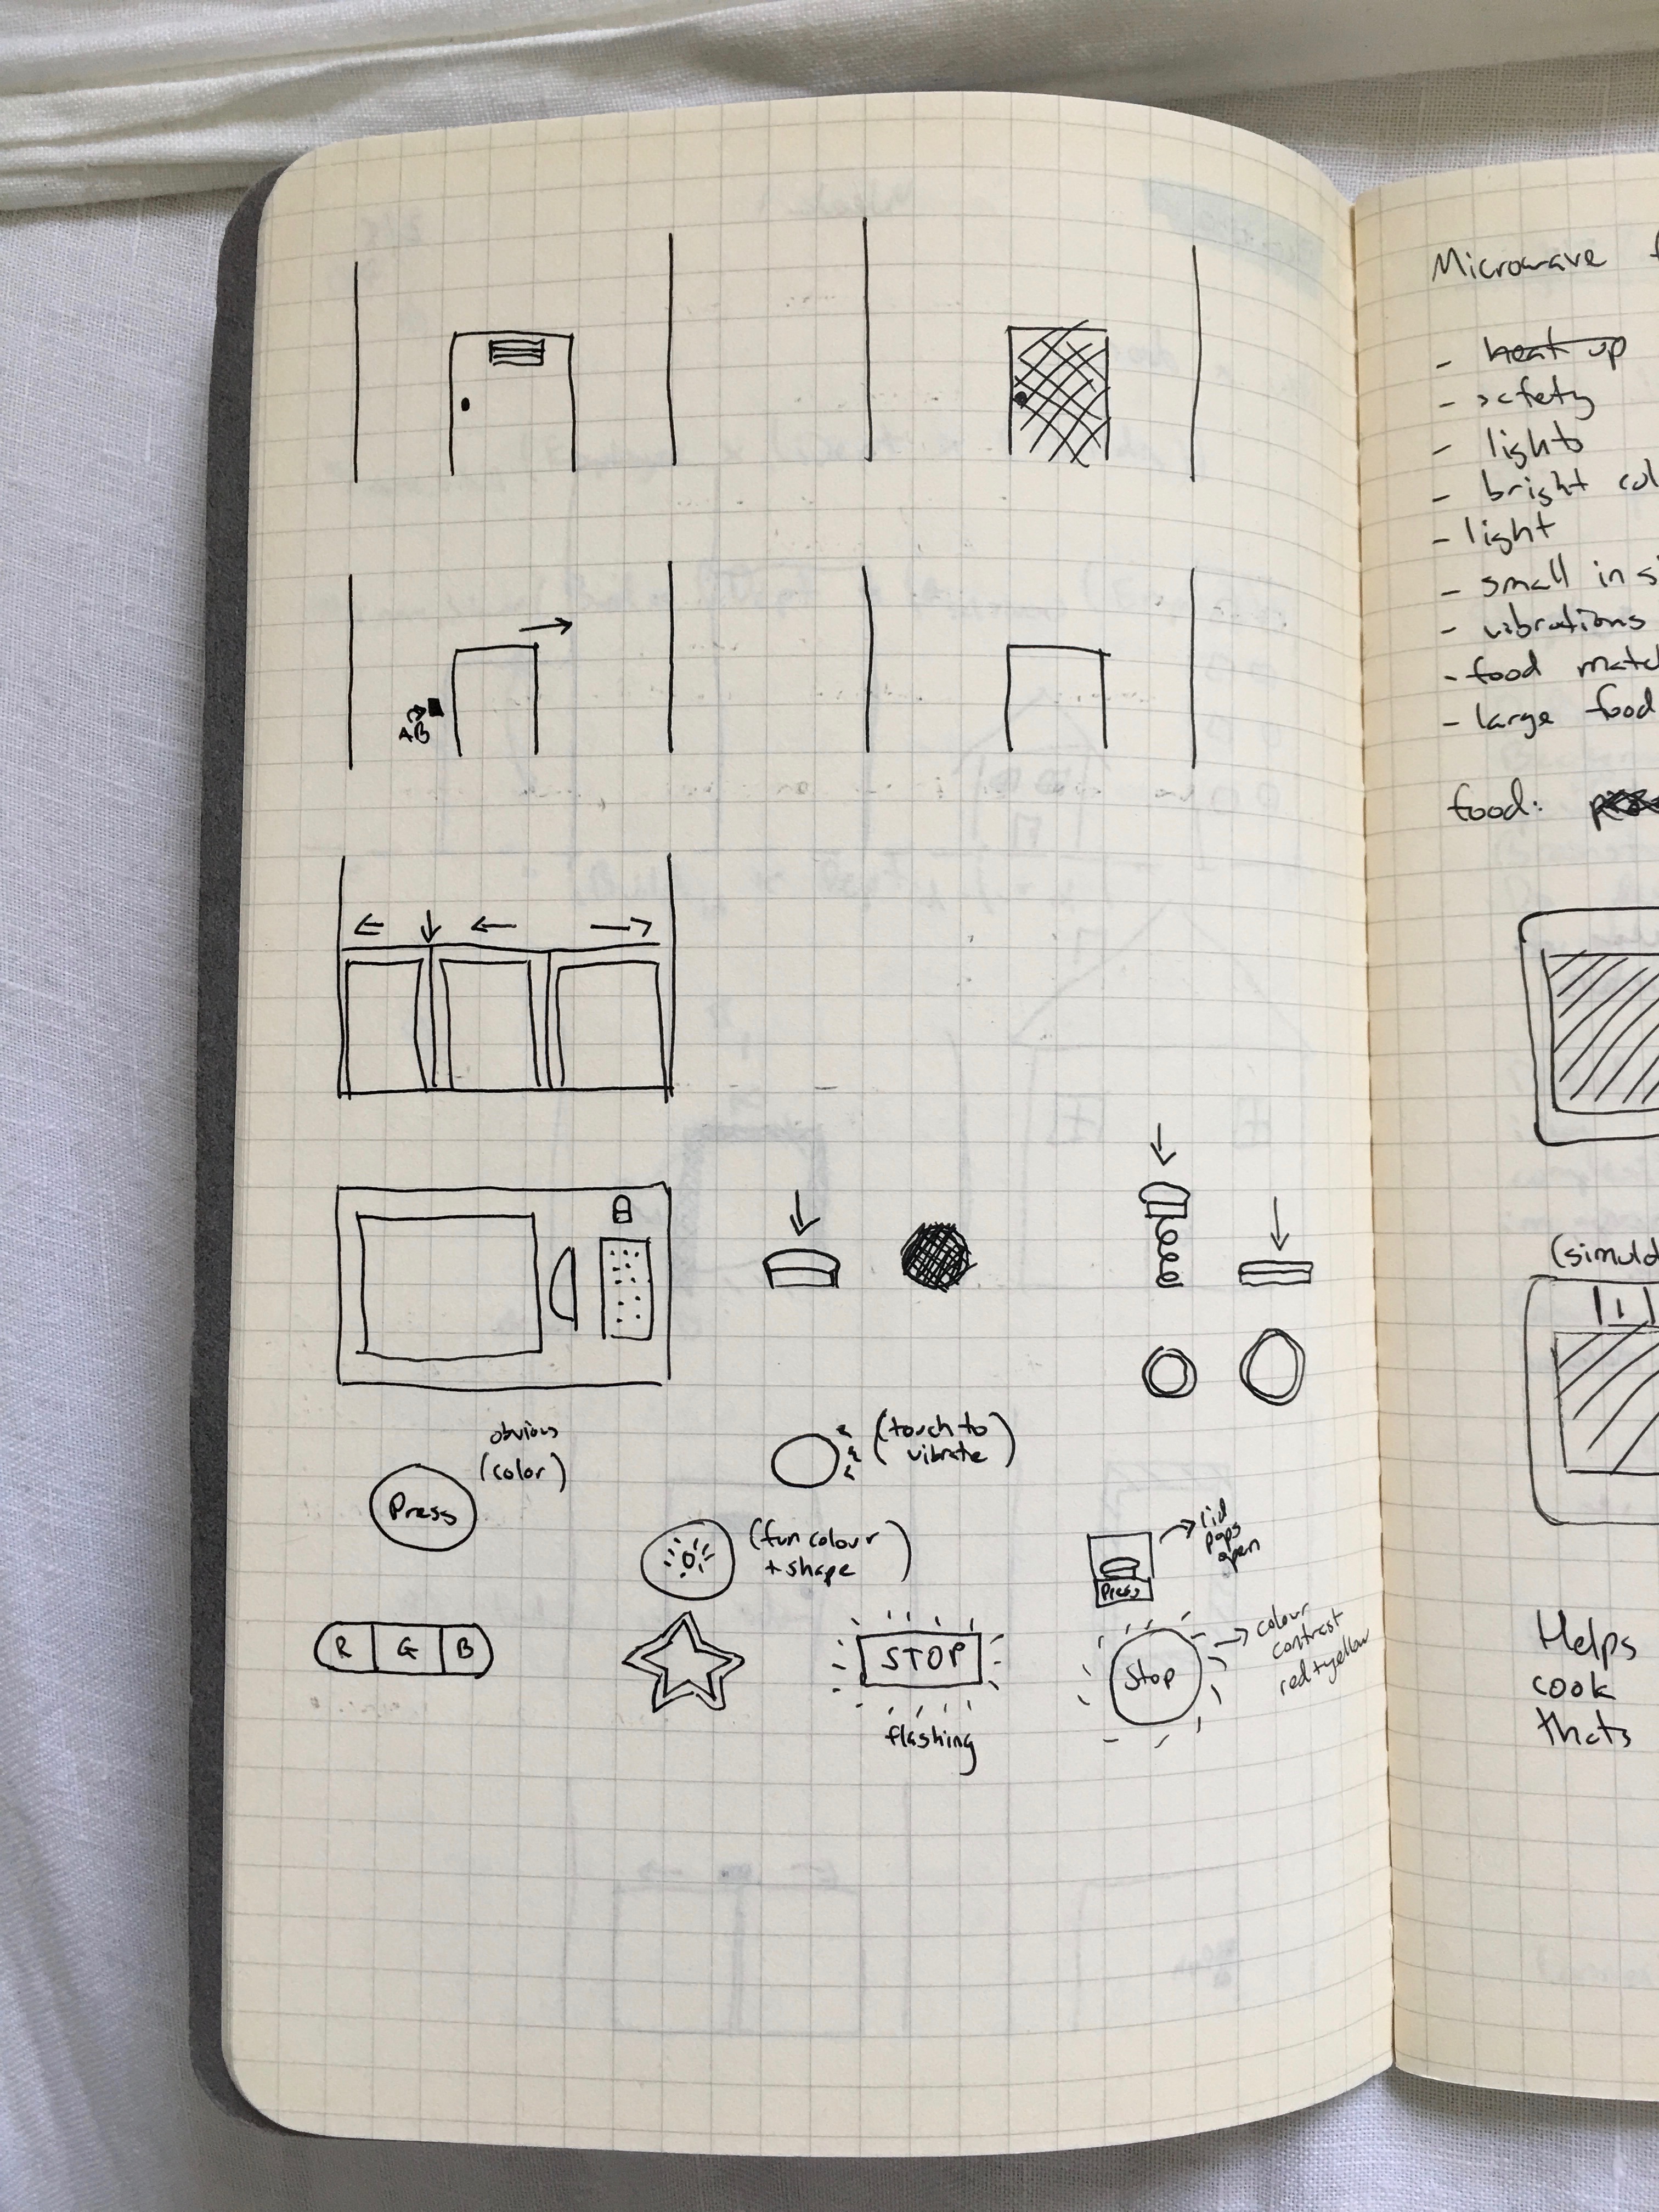 AB
obvious
(color)
Press
(touch to
vibrate)
(fun colour
+ shape)
lid
pops
open
Press
R G B
STOP
flashing
Stop
colour
contrast
red+yellow
Microwave
- heat up
- safety
- lights
- bright col
- light
- small in si
- vibrations
- food match
- large food
food:
(simula
Helps
cook
thats